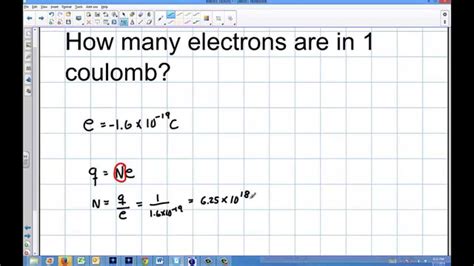 How many electrons are in 1
coulomb?
e = -1.6 x 10^-19 C
q = Ne
N = q/e = 1/1.6x10^-19 = 6.25 x 10^18